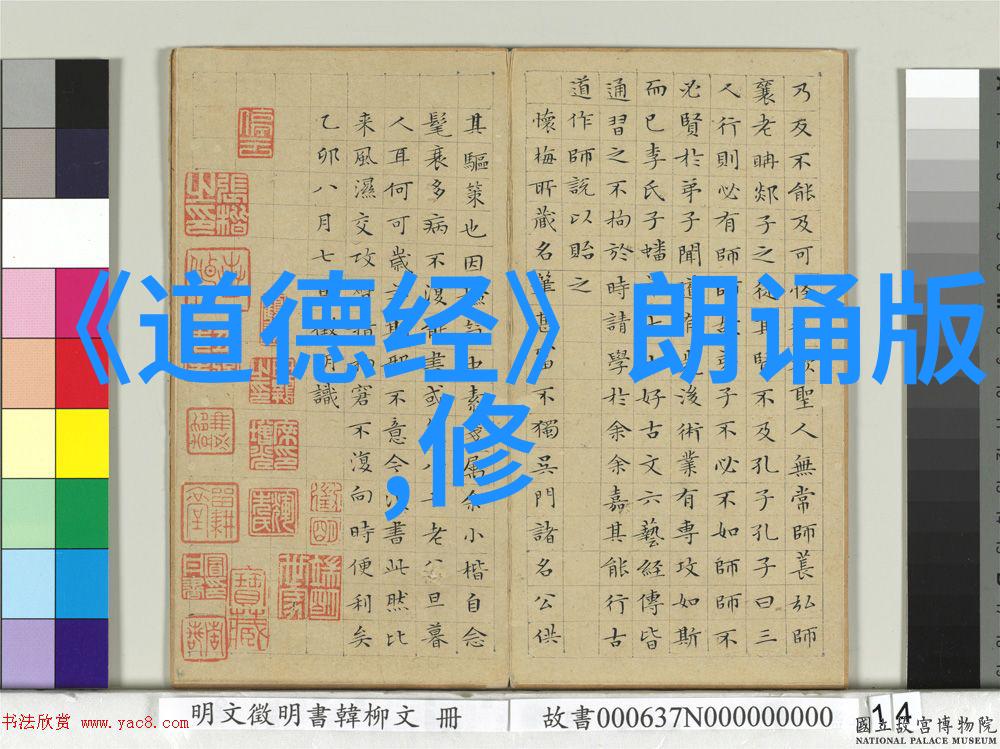 《道德经》朗诵版
,修
乃反不能及可怪也歟聖人無常師萇弘師
襄老聃郯子之徒其賢不及孔子孔子曰三
人行則必有師是故弟子不必不如師師不
必賢於弟子聞道有先後術業有專攻如斯
而已李氏子蟠年十七好古文六藝經傳皆
通習之不拘於時請學於余余嘉其能行古
道作師說以貽之
懷梅所藏名筆甚富不獨吳門諸名公供
其驅策也因余小楷自念
髦衰多病不復能書或老公旦暮
人耳何可歲不意今復書此然比
来風濕交攻臂指拘窘不復向時便利矣
乙卯八月七日徵明識
明文徵明書韓柳文 冊
故書000637N000000000
14
书法欣赏 www.yac8.com
國立故宮博物院
NATIONAL PALACE MUSEUM